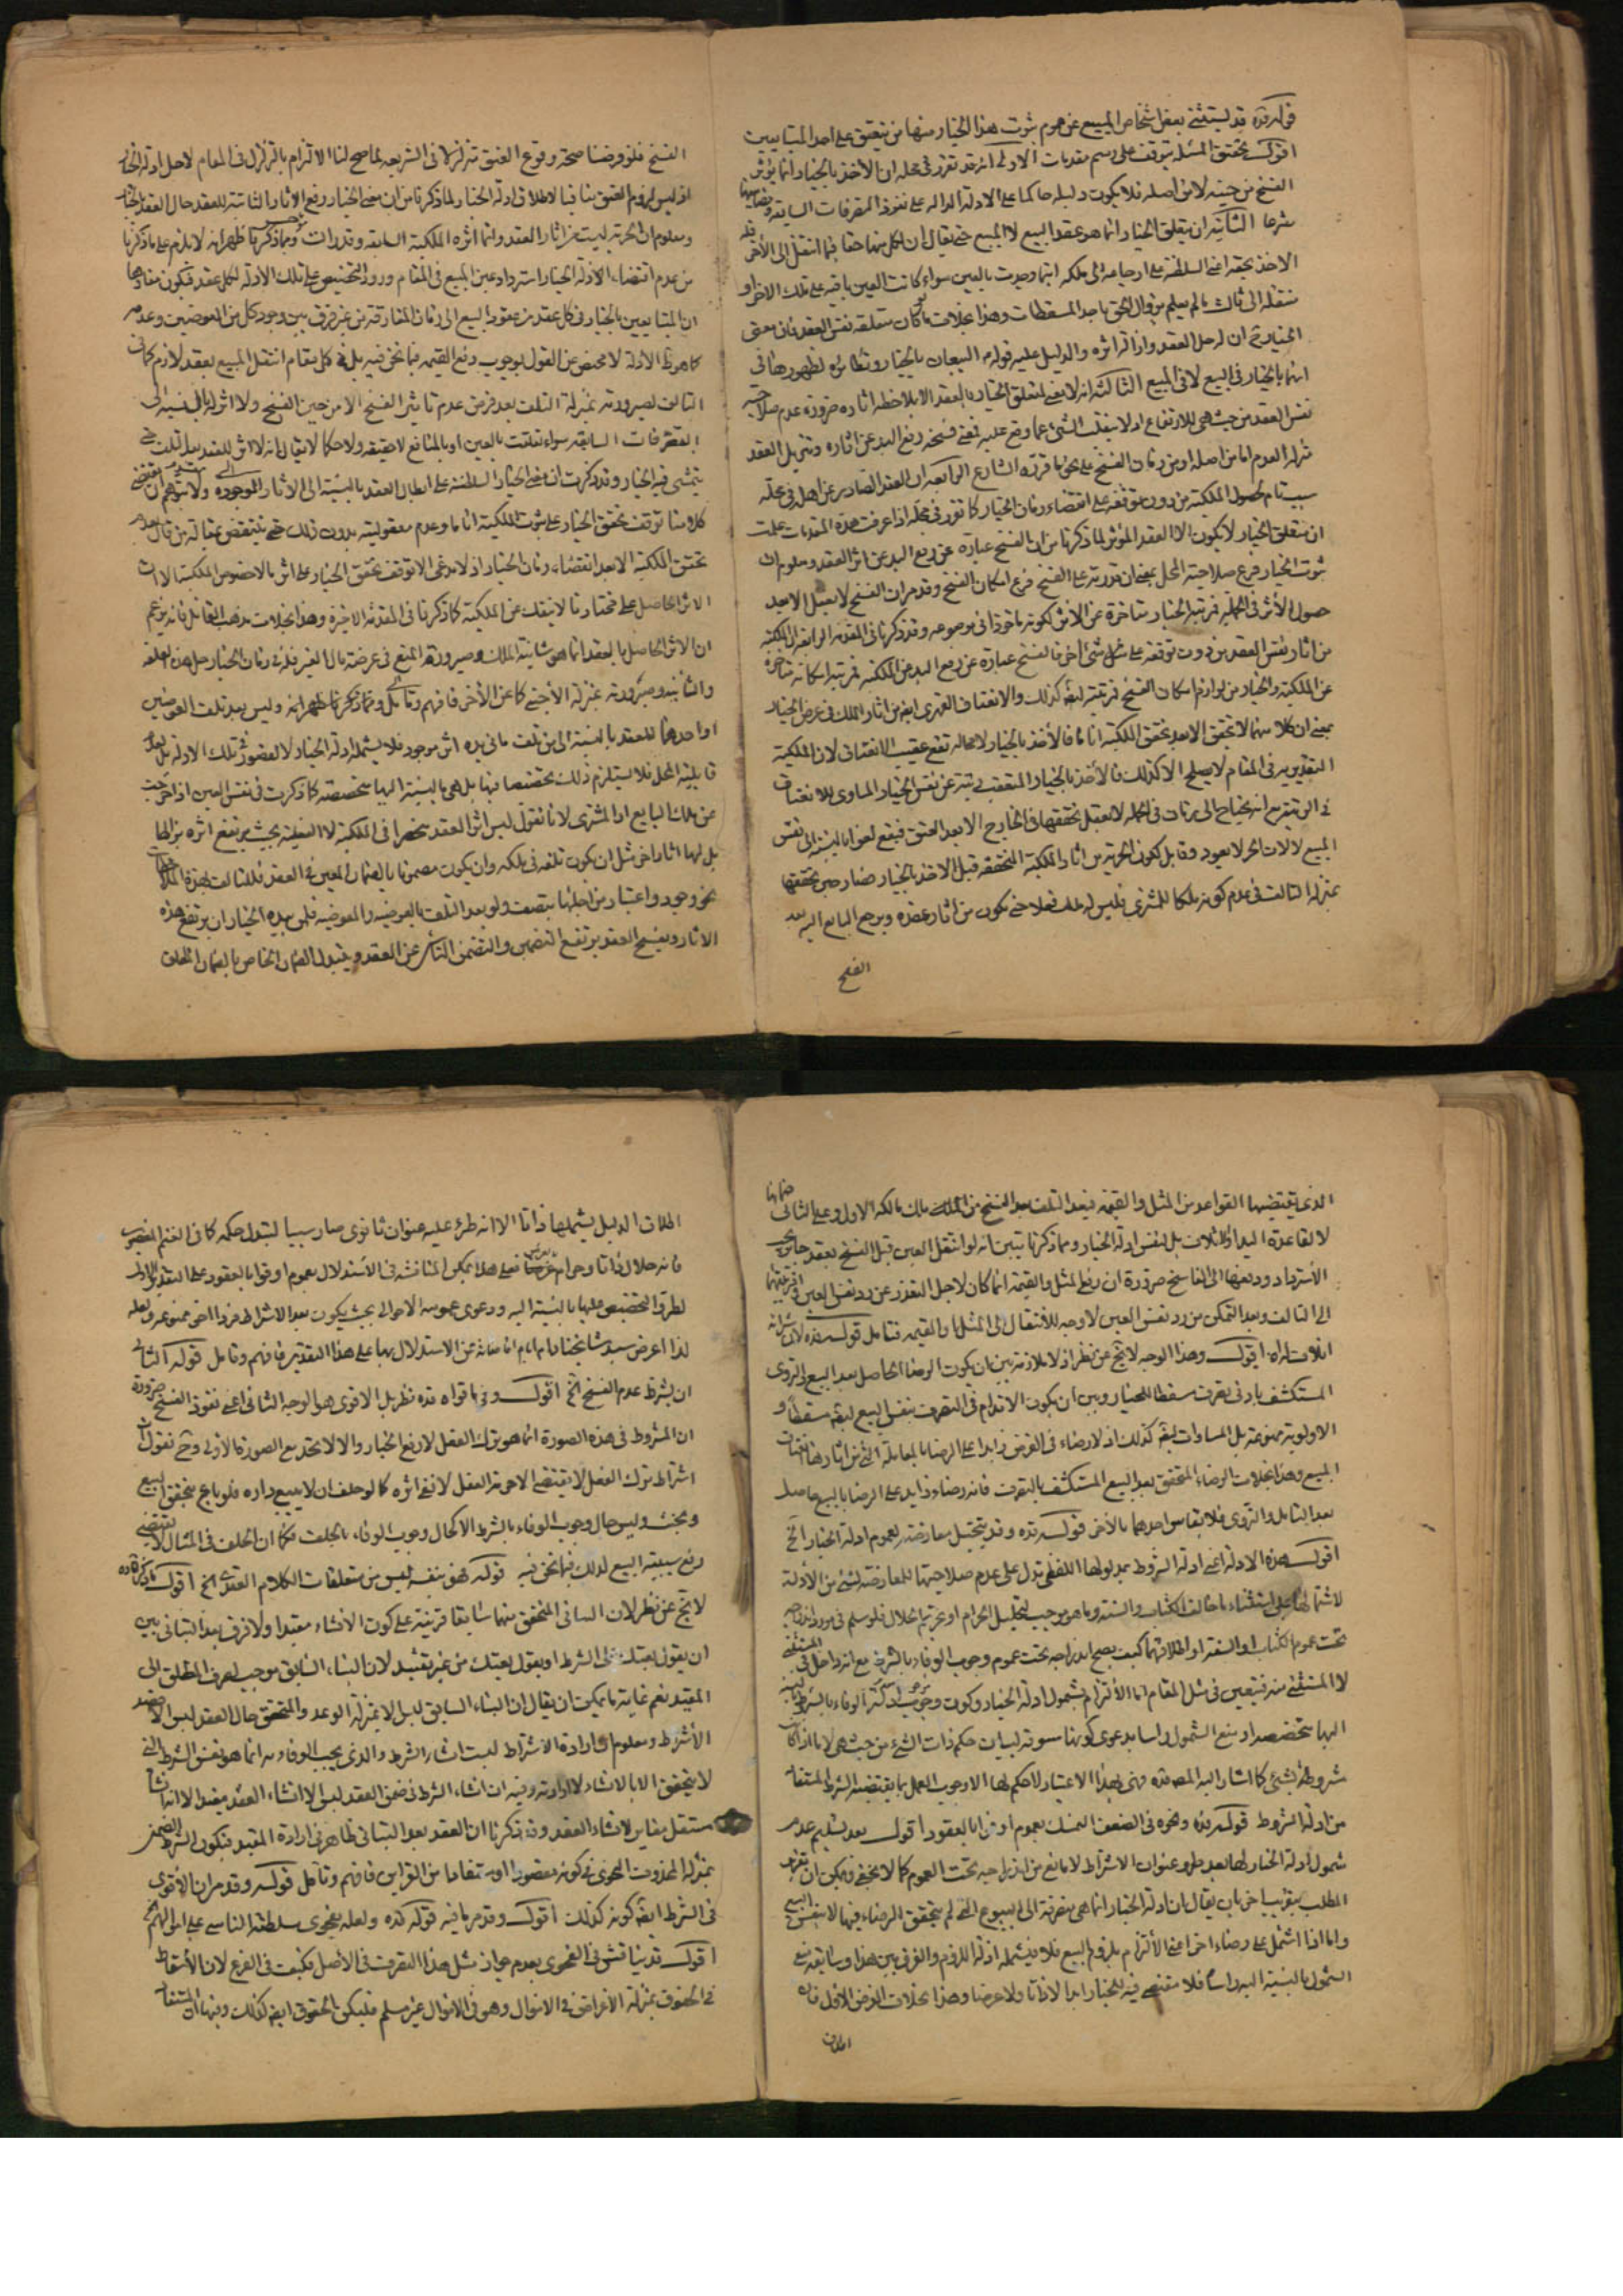 قوله قده قد يستثنى بعض اشخاص المبيع عن عموم ثبوت هذا الخيار منها من ينعتق على احد المتبايعين
اقول تحقيق المسئلة يتوقف على رسم مقدمات الاولى انه قد تقرر في محله ان الاخذ بالخيار انما يؤثر
الفسخ من حينه لا من اصله فلا يكون دليله حاكما على الادلة الدالة على نفوذ التصرفات السابقة
شرعا الثانية ان متعلق الخيار انما هو عقد البيع لا المبيع حتى يقال ان لكل منهما حقا فيما انتقل الى الآخر فله
الاخذ بحقه اعني السلطنة على ارجاعه الى ملكه اينما وجدت بالعين سواء كانت العين باقية على ملك الاخر او
منتقلة الى ثالث ما لم يعلم زوال الحق باحد المسقطات وهذا بخلاف ما لو كان متعلقه نفس العقد فان معنى
الخيار ان له حل العقد وازالة اثره والدليل عليه قوله البيعان بالخيار ونظائره لظهورها في
انهما بالخيار في البيع لا في المبيع الثالثة انه لا معنى لتعلق الخيار بالعقد الا بملاحظة اثاره ضرورة عدم صلاحية
نفس العقد من حيث هي للارتفاع اذ لا ينقلب الشيء عما وقع عليه فمعنى فسخه رفع اليد عن اثاره وتنزيل العقد
منزلة العدم اما من اصله او من زمان الفسخ على نحو ما قرره الشارع الرابعة ان للعقد الصادر عن اهله في محله
سبب تام لحصول الملكية من دون توقفه على انقضاء زمان الخيار كما تقرر في محله اذا عرفت هذه المقدمات علمت
ان متعلق الخيار لا يكون الا العقد المؤثر لما ذكرنا من ان الفسخ عبارة عن رفع اليد عن اثر العقد ومعلوم ان
ثبوت الخيار فرع صلاحية المحل بمعنى ان قدرته على الفسخ فرع امكان الفسخ وقد مر ان الفسخ لا يعقل الا بعد
حصول الاثر في الجملة فمرتبة الخيار متاخرة عن الاثر لكونه ماخوذا في موضوعه وقد ذكرنا في المقدمة الرابعة ان الملكية
من اثار نفس العقد من دون توقفه على شيء اخر فالفسخ عبارة عن رفع اليد عن الملكية فمرتبة امكانه متاخرة
عن الملكية والخيار من لوازم امكان الفسخ فمرتبته ايضا كذلك والانعتاق القهري ايضا من اثار الملك في عرض الخيار
بمعنى ان كلا منهما لا يتحقق الا بعد تحقق الملكية انا ما فالأخذ بالخيار لا محالة تقع عقيب الانعتاق لان الملكية
التقديرية في المقام لا يصلح الا كذلك فالأخذ بالخيار المتعقب رتبة عن نفس الخيار المساوي للانعتاق
في المرتبة حيث انه يحتاج الى زمان في الجملة لا يعقل تحققها في الخارج الا بعد العتق فيقع لغوا بالنسبة الى نفس
المبيع لان الحر لا يعود وقابل لكون الحرية من اثار الملكية المتحققة قبل الاخذ بالخيار فصار حين تحققها
بمنزلة التالف في عدم كونه ملكا للمشتري فليس له ملك فعلا حتى يكون من اثار عقده ويرجع البايع اليه بعد
الفسخ
الفسخ فلو فرضنا صحة وقوع العتق متزلزلا في الشريعة لما صح لنا الالتزام بالتزلزل في المقام لاجل ادلة الخيار
اذ ليس لزوم العتق منافيا لاطلاق ادلة الخيار لما ذكرنا من ان معنى الخيار رفع الاثار الثابتة للعقد حال العقد
ومعلوم ان الحرية ليست من اثار العقد وانما اثره الملكية السابقة وقد زالت ومما ذكرنا ظهر انه لا يلزم على ما ذكرنا
من عدم اقتضاء الادلة الخيار استرداد عين المبيع في المقام ورود التخصيص على تلك الادلة لكل عقد فيكون مفادها
ان المتبايعين بالخيار في كل عقد من عقود البيع الى زمان المفارقة من غير فرق بين وجود كل من العوضين وعدمه
كما هو ظ الادلة لا محيص عن القول بوجوب دفع القيمة فيما نحن فيه بل في كل مقام انتقل المبيع بعقد لازم كما في
التالف لصيرورته بمنزلة التلف بعد فرض عدم تاثير الفسخ الا من حين الفسخ ولا اثر له بالنسبة الى
التصرفات السابقة سواء تعلقت بالعين او بالمنافع لا حقيقة ولا حكما لا يقال انه لا اثر للعقد بعد التلف حتى
يتمشى فيه الخيار وقد ذكرت ان معنى الخيار السلطنة على ابطال العقد بالنسبة الى الاثار الموجودة ولا يتوهم ان مقتضى
كلامنا توقف تحقق الخيار على ثبوت الملكية انا ما وعدم معقوليته بدون ذلك حتى ينتقض بمقالة من قال بعدم
تحقق الملكية الا بعد انقضاء زمان الخيار اذ لا ندعى الا توقف تحقق الخيار على اثر ما لا خصوص الملكية الا ان
الاثر الحاصل على مختارنا لا ينفك عن الملكية كما ذكرنا في المقدمة الاخيرة وهذا بخلاف مذهب القائل فانه يزعم
ان الاثر الحاصل بالعقد انما هو شأنية الملك وصيرورة المبيع في عرضة مال الغير فله في زمان الخيار حل هذه العلقة
والشأنية وصيرورته بمنزلة الأجنبي كما عن الأخر فافهم وتامل ومما ذكرنا ظهر انه وليس بعد تلف العوضين
او احدهما للعقد بالنسبة الى من تلف ما في يده اثر موجود فلا يشمله ادلة الخيار لا لقصور تلك الادلة بل لعدم
قابلية المحل فلا يستلزم ذلك تخصيصا فيها بل هي بالنسبة اليها متخصصة كما ذكرت في نفس العين اذا خرجت
عن ملك البايع او المشتري لانا نقول ليس اثر العقد منحصرا في الملكية بحيث يرتفع اثره بزوالها
بل لها اثار اخر مثل ان يكون تلفه في ملكه وان يكون مضمونا بالضمان المعين في العقد فللتالف بهذه الملاحظات
نحو وجود واعتبار من اجلها يتصف ولو بعد التلف بالعوضية والمعوضية فلمن بيده الخيار ان يرفع هذه
الاثار وبفسخ العقد يرتفع التضمين والتضمن الناشى عن العقد ويتبدل الضمان الخاص بالضمان المطلق
الذي يقتضيها القواعد من المثل والقيمة فبعد التلف بعد الفسخ من الملك مالكه الاول وعلى الثاني ضمانها
لا لقاعدة اليد او الاتلاف بل لنفس ادلة الخيار ومما ذكرنا تبين انه لو انتقل العين قبل الفسخ بعقد جايز يجب
الأسترداد ودفعها الى الفاسخ ضرورة ان رفع المثل والقيمة انما كان لاجل التعذر عن رد نفس العين
الى التالف وبعد التمكن من رد نفس العين لا وجه للانتقال الى المثل او القيمة فتامل قوله قده لان شرائه
اتلاف له اقول وهذا الوجه لا يخ عن نظر اذ لا ملازمة بين ان يكون الرضا الحاصل بعد البيع والتروى
المستكشف بادنى تصرف مسقطا للخيار وبين ان يكون الاقدام في التصرف بنفس البيع ايضا مسقطا و
الاولوية ممنوعة بل المساوات ايضا كذلك اذ لا رضاء في الفرض زايدا على الرضا بالمعاملة التي من اثارها انعتاق
المبيع وهذا بخلاف الرضاء المتحقق بعد البيع المستكشف بالتصرف فانه رضاء زايد على الرضا بالبيع حاصل
بعد التامل والتروى فلا يقاس احدهما بالأخر قوله قده وقد يتخيل معارضته لعموم ادلة الخيار الخ
اقول هذه الادلة اعني ادلة الشروط بمدلولها اللفظي تدل على عدم صلاحيتها للمعارضة لشئ من الأدلة
لاشتمالها على استثناء ما خالف الكتاب والسنة وما هو موجب لتحليل الحرام او تحريم الحلال فلو سلم في مورد اندراجه
تحت عموم الكتاب او السنة او اطلاقهما كيف يصح اندراجه تحت عموم وجوب الوفاء بالشرط مع انه داخل في المستثنى
لا المستثنى منه فيتعين في مثل المقام اما الألتزام بشمول ادلة الخيار وكون ادلة الوفاء بالشرط بالنسبة
اليها متخصصة او منع الشمول راسا بدعوى كونها مسوقة لبيان حكم ذات الشئ من حيث هي لا ما اذا كان
مشروطة بشئ كما اشار اليه المص قده فهى بهذا الاعتبار لا حكم لها الا وجوب العمل بما يقتضيه الشرط المستفاد
من ادلة الشروط قوله قده ونحوه في الضعف التمسك بعموم اوفوا بالعقود اقول بعد تسليم عدم
شمول ادلة الخيار لها بعد طرو عنوان الاشراط لا مانع من اندراجه تحت العموم كما لا يخفى ويمكن ان يقرر
المطلب بتقريب اخر بان يقال ان ادلة الخيار انما هي منصرفة الى البيوع التي لم يتحقق الرضاء فيها الا بنفس البيع
واما اذا اشتمل على رضاء اخر اعني الألتزام بلزوم البيع فلا يشمله ادلة اللزوم والفرق بين هذا وسابقه منع
الشمول بالنسبة اليه راسا فلا مقتضى فيه للخيار ابدا لا ذاتا ولا عرضا وهذا بخلاف الفرض الاول فان
اطلاق
اطلاق الدليل يشملها ذاتا الا انه طرء عليه عنوان ثانوى صار سببا لتبدل حكمه كما في الغنم المغصوب
فانه حلال ذاتا وحرام عرضا فعلى هذا يمكن المناقشة في الأستدلال بعموم اوفوا بالعقود على التقدير الاول
لطرو التخصيص عليها بالنسبة اليه ودعوى عمومه الاحوالى بحيث يكون بعد الاشراط فردا اخر ممنوعة ولعله
لذا اعرض سيد مشايخنا دام ايام افاضاته عن الاستدلال بها على هذا التقدير فافهم وتامل قوله الثاني
ان يشترط عدم الفسخ الخ اقول وفي ما قواه قده نظر بل الاقوى هو الوجه الثاني اعني نفوذ الفسخ ضرورة
ان المشروط في هذه الصورة انما هو ترك الفعل لا رفع الخيار والا لاتحد مع الصورة الاولى وح نقول ان
اشتراط ترك الفعل لا يقتضى الا حرمة الفعل لا نفى اثره كما لو حلف ان لا يبيع داره فلو باع يتحقق البيع
ويحنث وليس حال وجوب الوفاء بالشرط الا كحال وجوب الوفاء بالحلف فكما ان الحلف في المثال لا يقتضى
رفع سببية البيع كذلك فيما نحن فيه قوله فهو بنفسه ليس من متعلقات الكلام العقدى الخ اقول ما ذكره قده
لا يخ عن نظر لان التباني المتحقق منهما سابقا قرينة على كون الانشاء مقيدا ولا فرق بعد التبانى بين
ان يقول بعتك على الشرط او يقول بعتك من غير تقييد لان البناء السابق موجب لصرف المطلق الى
المقيد نعم غاية ما يمكن ان يقال ان البناء السابق ليس الا بمنزلة الوعد والمتحقق حال العقد ليس الا قصد
الأشتراط ومعلوم ان ارادة الاشتراط ليست انشاء الشرط والذي يجب الوفاء به انما هو نفس الشرط الذي
لا يتحقق الا بالانشاء لا ارادته وفيه ان انشاء الشرط في ضمن العقد ليس الا انشاء العقد مقيدا لا انه انشاء
مستقل مغاير لانشاء العقد وقد ذكرنا ان العقد بعد التبانى ظاهر في ارادة المقيد فيكون الشرط الضمني
بمنزلة المحذوف النحوى في كونه مقصودا ومستفادا من القراين فافهم وتامل قوله وقد مر ان الاقوى
في الشرط ايضا كونه كذلك اقول وقد مر ما فيه قوله قده ولعله لفحوى تسلط الناس على اموالهم الخ
اقول قد يناقش في الفحوى بعدم جواز مثل هذا التصرف في الأصل فكيف في الفرع لان الأسقاط
في الحقوق بمنزلة الأعراض في الاموال وهو في الاموال غير مسلم فليكن الحقوق ايضا كذلك وفيها ان المستفاد